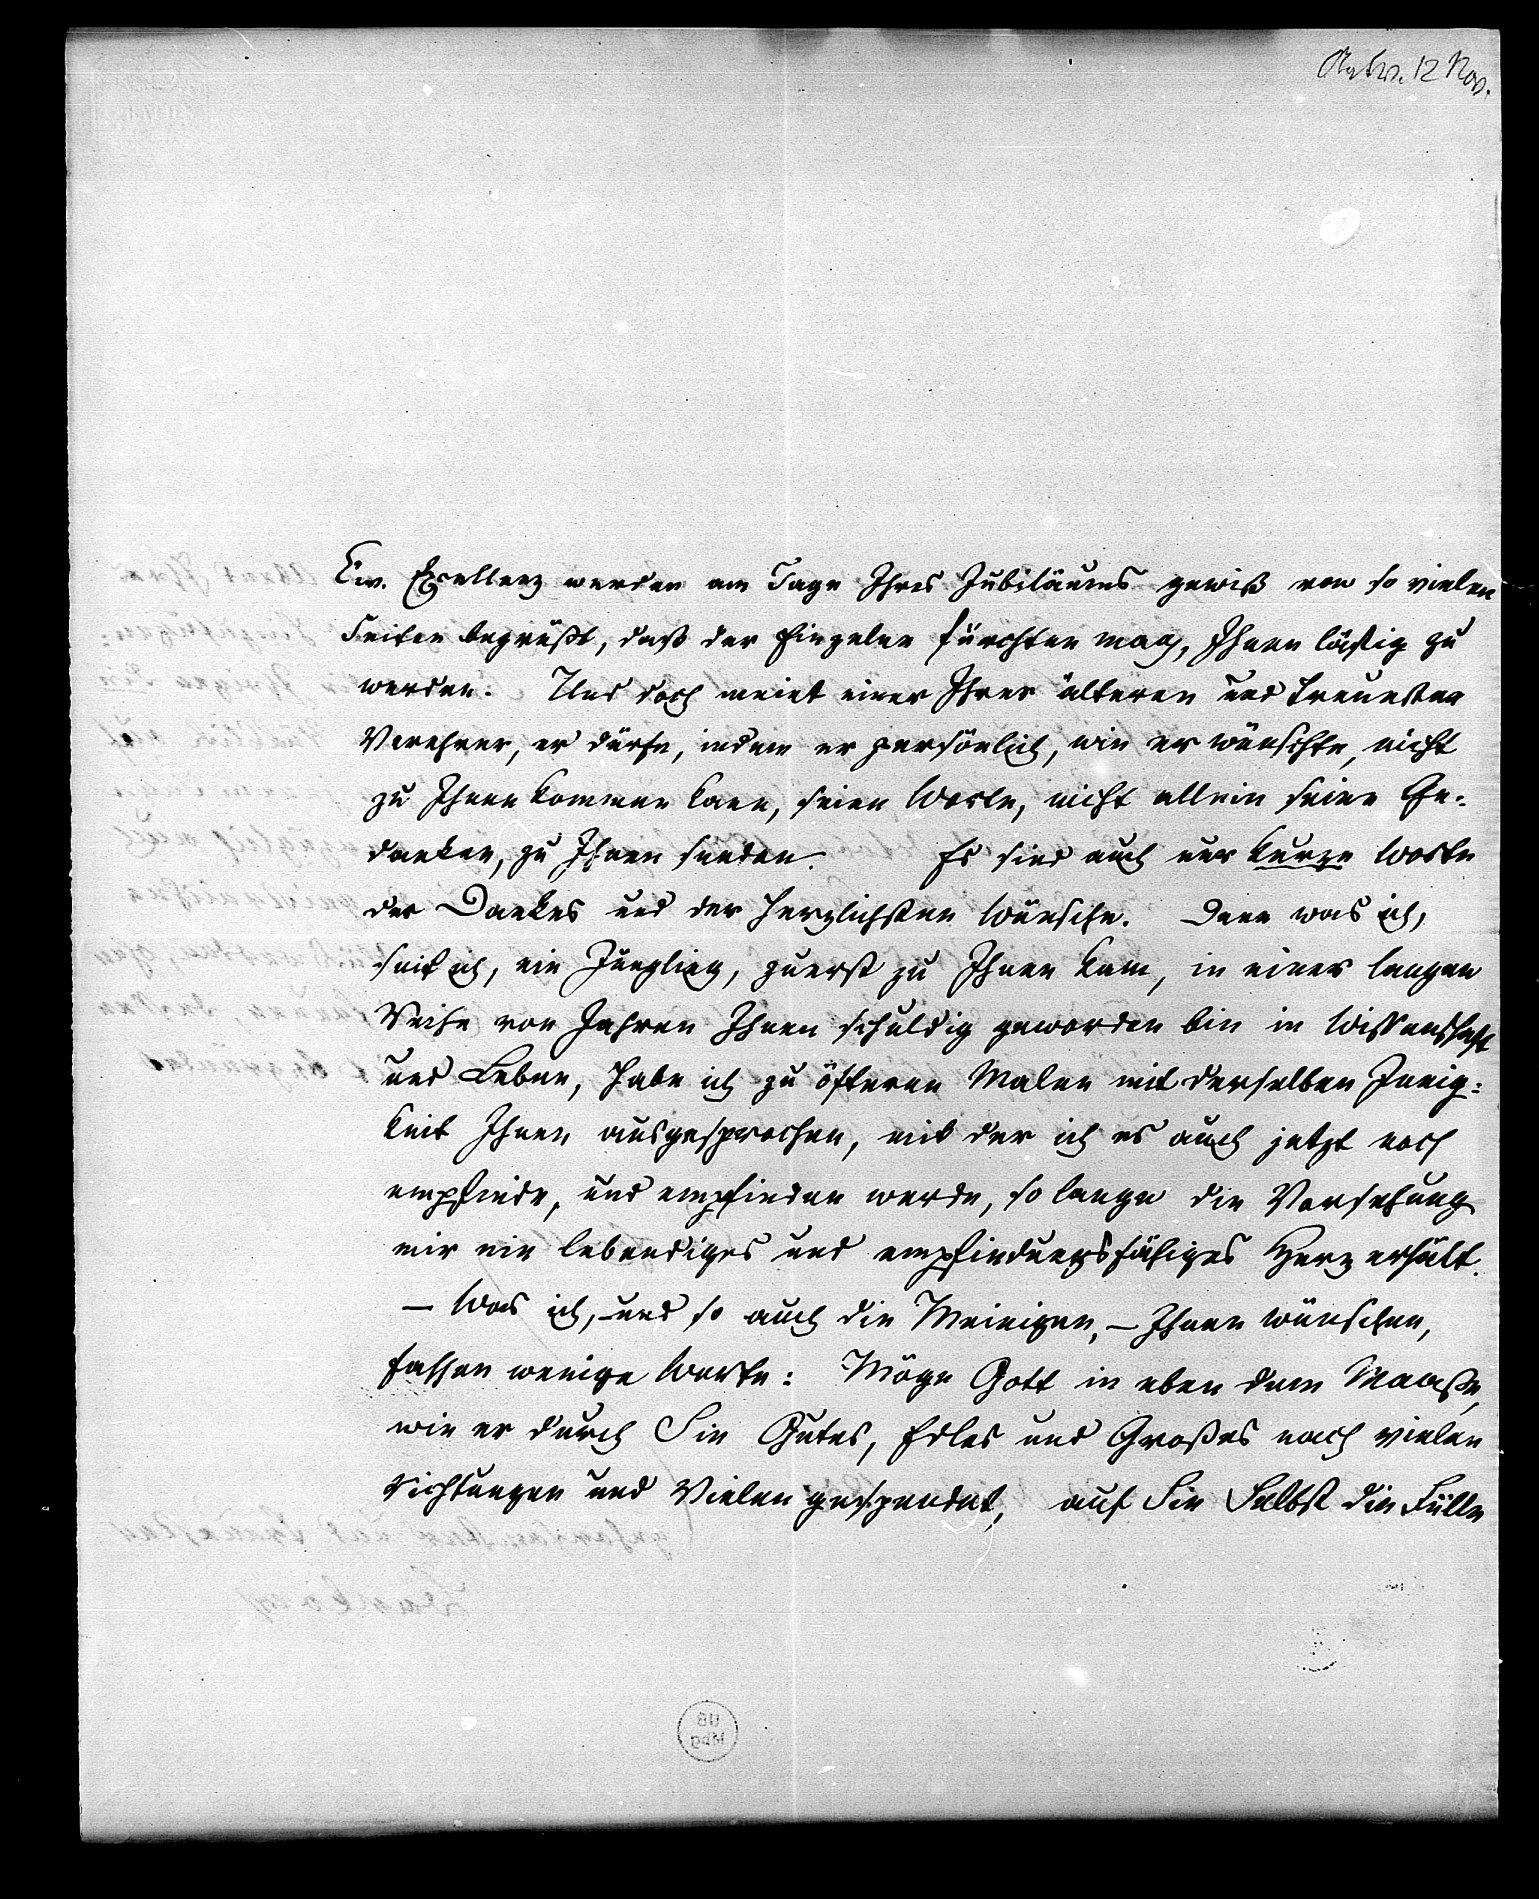 12 Nov.
Ew. Excellenz werden am Tage Ihres Jubiläums gewiß von so vielen
Seiten begrüßt, daß der Einzelne fürchten mag, Ihnen lästig zu
werden. Und doch meint einer Ihrer älteren und treuesten
Verehrer, er dürfe, indem er persönlich, wie er wünschte, nicht
zu Ihnen kommen kann, seine Worte, nicht allein seine Ge-
danken, zu Ihnen senden. Es sind auch nur kurze Worte
des Dankes und der herzlichsten Wünsche. Denn was ich,
seit ich, ein Jüngling, zuerst zu Ihnen kam, in einer langen
Reihe von Jahren Ihnen schuldig geworden bin in Wissenschaft
und Leben, habe ich zu öfteren Malen mit derselben Innig-
keit Ihnen ausgesprochen, mit der ich es auch jetzt noch
empfinde, und empfinden werde, so lange die Vorsehung
mir ein lebendiges und empfindungsfähiges Herz erhält.
– Was ich, und so auch die Meinigen, – Ihnen wünschen,
fassen wenige Worte: Möge Gott in eben dem Maaße,
wie er durch Sie Gutes, Edles und Großes nach vielen
Richtungen und Vielen gespendet, auf Sie Selbst die Fülle
UB
Mbg